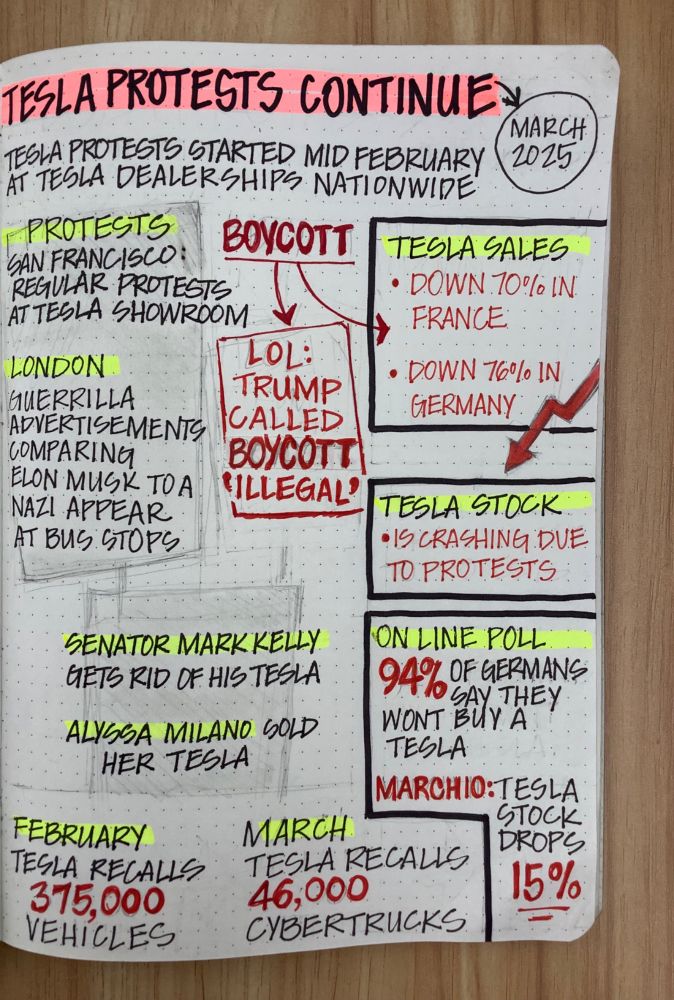 TESLA PROTESTS CONTINUE
MARCH
2025
TESLA PROTESTS STARTED MID FEBRUARY
AT TESLA DEALERSHIPS NATIONWIDE
PROTESTS
SAN FRANCISCO:
REGULAR PROTESTS
AT TESLA SHOWROOM
LONDON
GUERRILLA
ADVERTISEMENTS
COMPARING
ELON MUSK TO A
NAZI APPEAR
AT BUS STOPS
BOYCOTT
LOL:
TRUMP
CALLED
BOYCOTT
'ILLEGAL'
TESLA SALES
• DOWN 70% IN
FRANCE
• DOWN 76% IN
GERMANY
TESLA STOCK
• IS CRASHING DUE
TO PROTESTS
SENATOR MARK KELLY
GETS RID OF HIS TESLA
ALYSSA MILANO SOLD
HER TESLA
ON LINE POLL
94% OF GERMANS
SAY THEY
WONT BUY A
TESLA
MARCH 10: TESLA
STOCK
DROPS
15%
FEBRUARY
TESLA RECALLS
375,000
VEHICLES
MARCH
TESLA RECALLS
46,000
CYBERTRUCKS